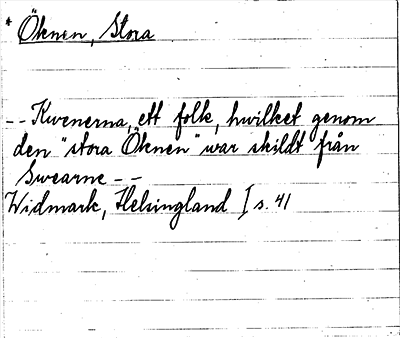 * Öknen, Stora
-- Kwenerna, ett folk, hwilket genom
den "stora Öknen" war skildt från
Swearne --
Widmark, Helsingland I s. 41